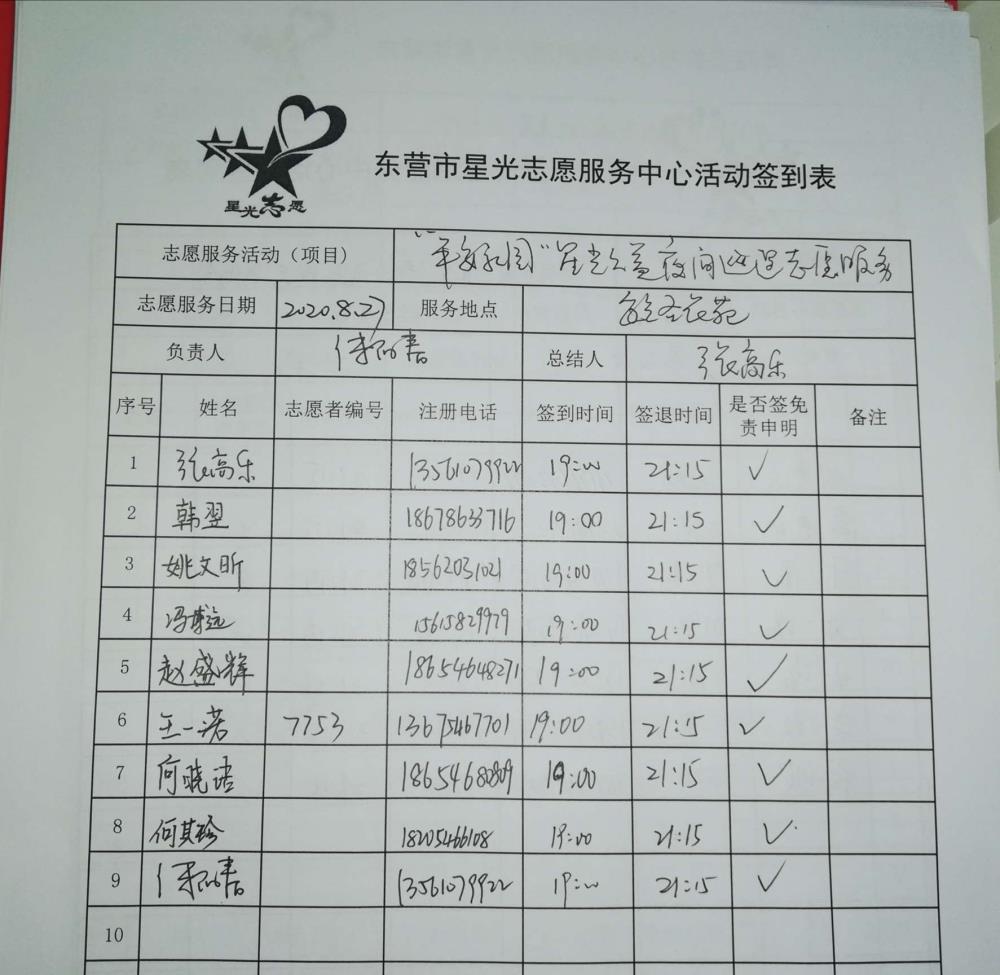 星光志愿
东营市星光志愿服务中心活动签到表
志愿服务活动（项目） "平安家园"星光公益夜间巡逻志愿服务
志愿服务日期 2020.8.27 服务地点
负责人 总结人 张高乐
序号 姓名 志愿者编号 注册电话 签到时间 签退时间 是否签免责申明 备注
1 张高乐 13561079922 19:00 21:15 ✓
2 韩翌 18678633716 19:00 21:15 ✓
3 姚文昕 18562031021 19:00 21:15 ✓
4 冯博远 15615829979 19:00 21:15 ✓
5 赵盛辉 18654648271 19:00 21:15 ✓
6 王一诺 7753 13675467701 19:00 21:15 ✓
7 何晓诺 18654680809 19:00 21:15 ✓
8 何其珍 18205466108 19:00 21:15 ✓
9 13561079922 19:00 21:15 ✓
10